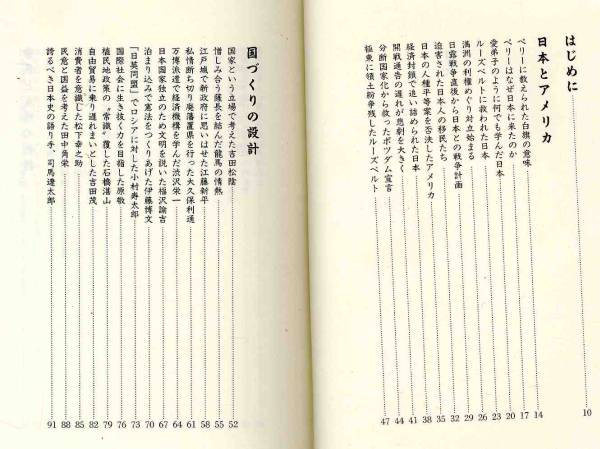 はじめに 10
日本とアメリカ
ペリーに教えられた白旗の意味 14
ペリーはなぜ日本に来たのか 17
愛弟子のように何でも学んだ日本 20
ルーズベルトに救われた日本 23
満洲の利権めぐり対立始まる 26
日露戦争直後から日本との戦争計画 29
迫害された日本人の移民たち 32
日本の人種平等案を否決したアメリカ 35
経済封鎖で追い詰められた日本 38
開戦通告の遅れが悲劇を大きく 41
分断国家化から救ったポツダム宣言 44
極東に領土紛争残したルーズベルト 47
国づくりの設計
国家という立場で考えた吉田松陰 52
憎しみ合う薩長を結んだ龍馬の情熱 55
江戸城で新政府に思いはせた江藤新平 58
私情断ち切り廃藩置県を行った大久保利通 61
万博派遣で経済機構を学んだ渋沢栄一 64
日本国家独立のため文明を説いた福沢諭吉 67
泊まり込みで憲法をつくりあげた伊藤博文 70
「日英同盟」でロシアに対した小村寿太郎 73
国際社会に生き抜く力を目指した原敬 76
植民地政策の〝常識〟覆した石橋湛山 79
自由貿易に乗り遅れまいとした吉田茂 82
消費者を意識した松下幸之助 85
民意と国益を考えた田中角栄 88
誇るべき日本史の語り手、司馬遼太郎 91